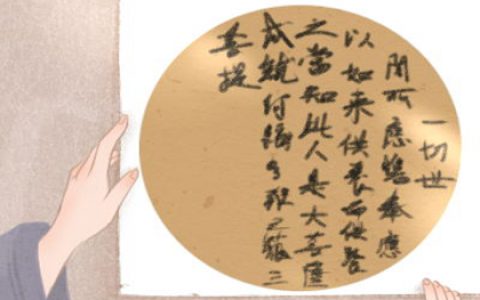 一切世
間所應瞻奉應
以如来供養而供養
之當知此人是大菩薩
成就阿耨多羅三藐三
菩提